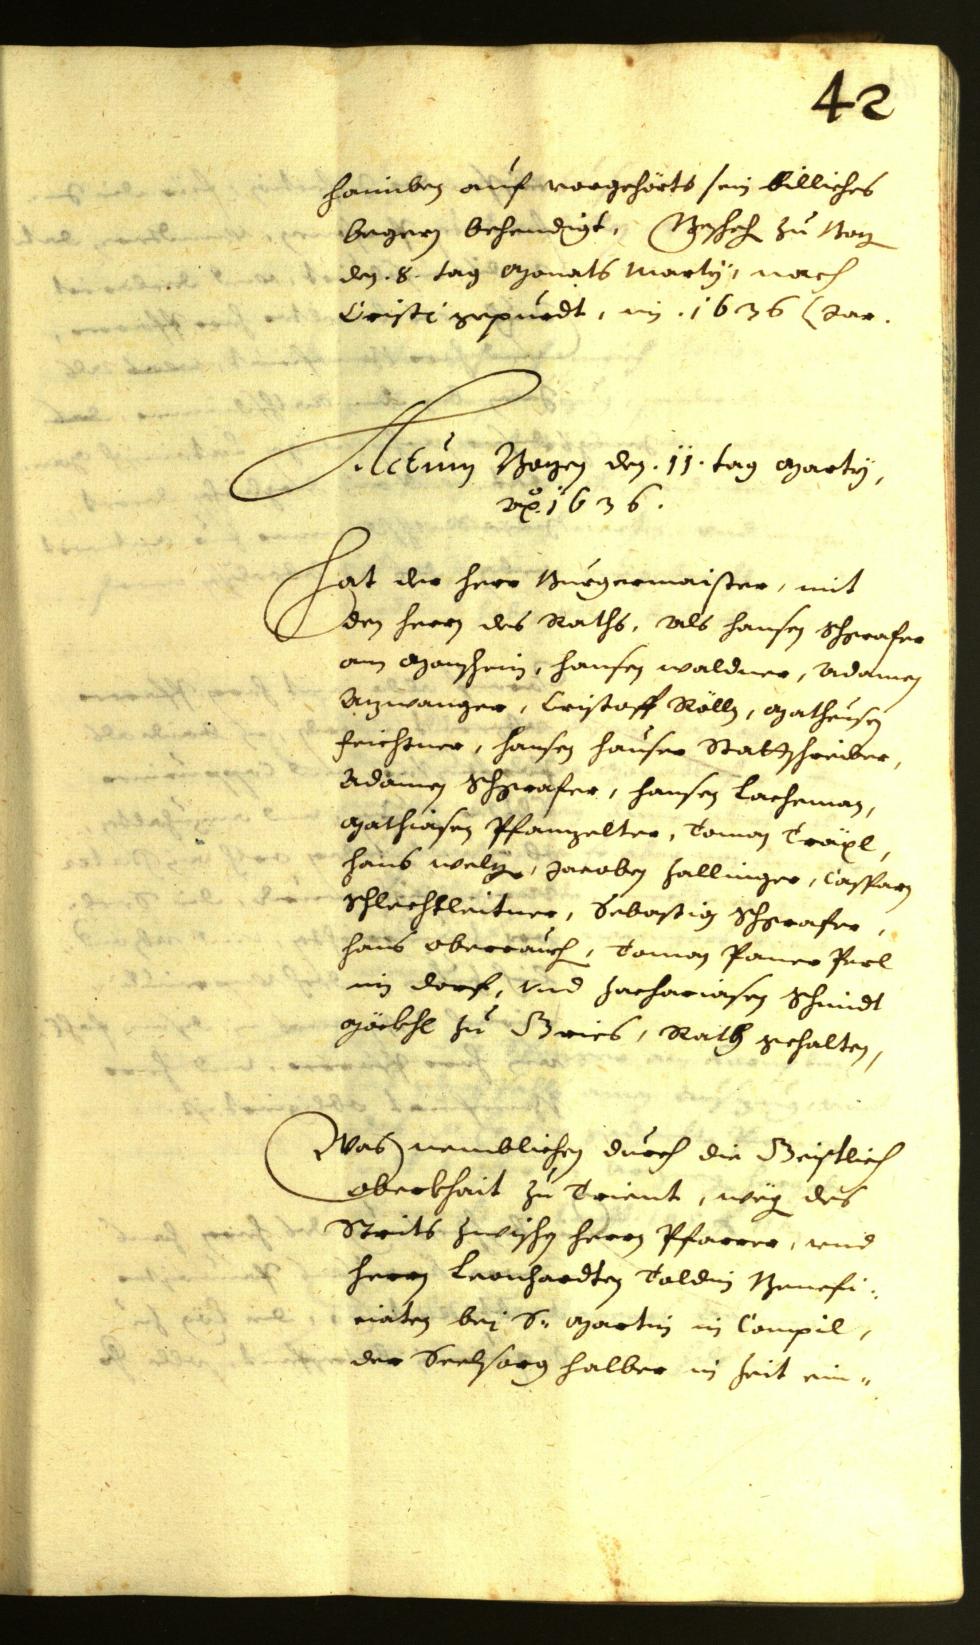 42
hannben auf vorgehörts sein billiches
begern behendigt, Beschech zu Bozn
den .8. tag Monats Marty, nach
Cristi gepurdt, im .1636 Jar.
Actum Bozen den .11. tag Marty,
Ao. 1636.
Hat der herr Burgermaister, mit
den herrn des Raths, als Hansen Schgrafer
am Hansen Waldner, Adamen
Azwanger, Cristoff Rölln, Matheusen
Feichtner, Hansen Hauser Stattschreiber,
Adamen Schgrafer, Hansen Lacheman,
Mathiasen Pfanzelter, Toman Träxl,
Hans Welz, Jacoben Zallinger, Casparn
Schlechtleitner, Sebastian Schgrafer,
Hans Oberrauch, Toman Pamer Perl
im dorf, vnd Zachariasen Schmidt
Möckhl zu Gries, Rath gehalten,
Was nemblichen durch die Geistlich
oberkhait zu Trient, weg des
Strits zwischn herrn Pfarrer, vnd
herrn Leonhardten Toldin Benefi-
ciaten bej S: Martin in Campil,
der Seelsorg halber in Zeit ein-